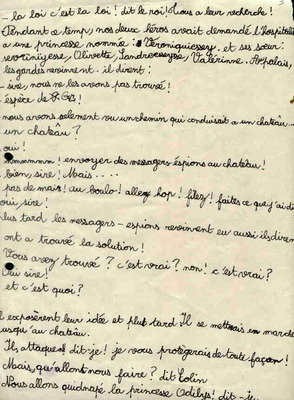 - la loi c'est la loi! dit le roi! Tous a leur recherche!
Pendant ce temp, nos deux héros avait demandé l'hospitali
a une princesse nommé et ses sœur:
Olivette,
les gardes revinrent. il dirent:
- sire, nous ne les avons pas trouvé!
- espèce de
nous avons selement vu un chemin qui conduisait a un chateau
- un chateau?
- oui!
- mmmmmm! envoyer des messagers-éspions au chateau!
- bien, sire! Mais....
- pas de mais! au boulo! allez hop! filez! faites ce que j'ai di
- oui, sire!
lus tard les messagers-espions revinrent eu aussi ils diren
- on a trouvé la solution!
- Vous avez trouvé? c'est vrai? non! c'est vrai?
- Oui sire!
- et c'est quoi?
exposèrent leur idée et plut tard Il se mettrais en march
usqu'au chateau.
- Ils attaquent dit-je! je vous protègerais de toute façon!
- Mais, qu'allont nous faire? dit Colin
- Nous allons quidnapé la princesse Odilys! dit-